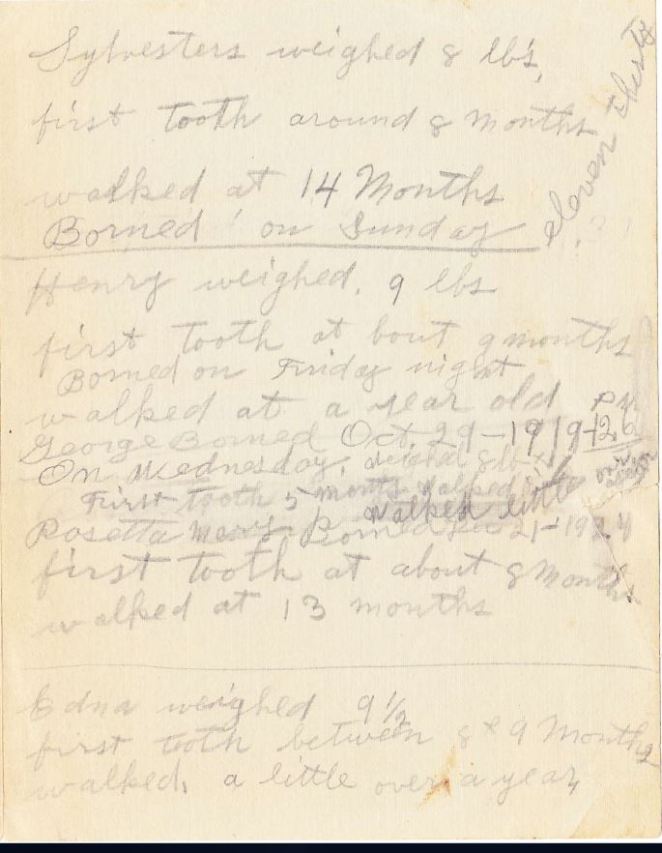 Sylvesters weighed 8 lbs,
first tooth around 8 months
walked at 14 Months
Borned on Sunday
eleven thirty
Henry weighed, 9 lbs
first tooth at bout 9 months
Borned on Friday night
walked at a year old
George Borned Oct. 29-1919-12.6 PM
On Wednesday, weighed 8 lb
First tooth 5 months walked
walked little over a year
Rosetta Mary Borned 21-1924
first tooth at about 8 Months
walked at 13 months
Edna weighed 9 1/2
first tooth between 8 & 9 Months
walked, a little over a year,